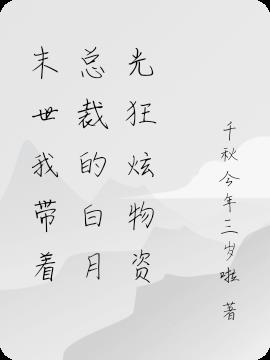 末世我带着
总裁的白月
光狂炫物资
千秋今年三岁啦 著